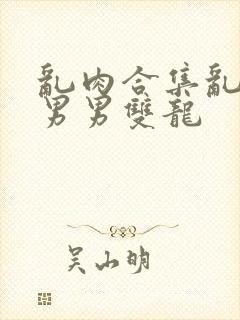 亂肉合集亂
男男雙龍
吴山明